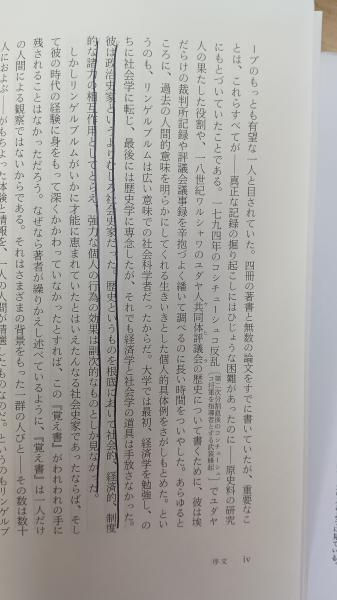 ープのもっとも有望な一人と目されていた。四冊の著書と無数の論文をすでに書いていたが、重要なこ
とは、これらすべてが——真正な記録の掘り起こしにはひじょうな困難があったのに——原史料の研究
にもとづいていたことである。一七九四年のコシチューシュコ反乱〔第二次分割直後のコシチューシュコ将軍を指導者とする武装蜂起〕でユダヤ
人の果たした役割や、一八世紀ワルシャワのユダヤ人共同体評議会の歴史について書くために、彼は埃
だらけの裁判所記録や評議会議事録を辛抱づよく繙いて調べるのに長い時間をついやした。あらゆると
ころに、過去の人間的意味を明らかにしてくれる生きいきとした個人的具体例をさがしもとめた。とい
うのも、リンゲルブルムは広い意味での社会科学者だったからだ。大学では最初、経済学を勉強し、の
ちに社会学に転じ、最後には歴史学に専念したが、それでも経済学と社会学の道具は手放さなかった。
彼は政治史家というよりむしろ社会史家だった。歴史というものを根底において社会的、経済的、制度
的な諸力の相互作用としてとらえ、強力な個人の行為の効果は副次的なものとしか見なかった。
しかしリンゲルブルムがいかに才能に恵まれていたとはいえたんなる社会史家であったならば、そし
て彼の時代の経験に身をもって深くかかわっていなかったとすれば、この『覚え書』がわれわれの手に
残されることはなかっただろう。なぜなら著者が繰りかえし述べているように、『覚え書』は一人だけ
の人間による観察ではないからである。それはさまざまの背景をもった一群の人びと——その数は数十
人におよぶ——がもちよった体験と情報を、一人の人間が
序文
iv